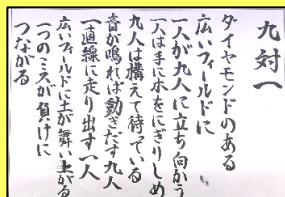 九対一
ダイヤモンドのある
広いフィールドに
一人が九人に立ち向かう
一人は手に木をにぎりしめ
九人は構えて待っている
音が鳴れば動きだす九人
一直線に走り出す一人
広いフィールドに土が舞い上がる
一つのミスが負けに
つながる